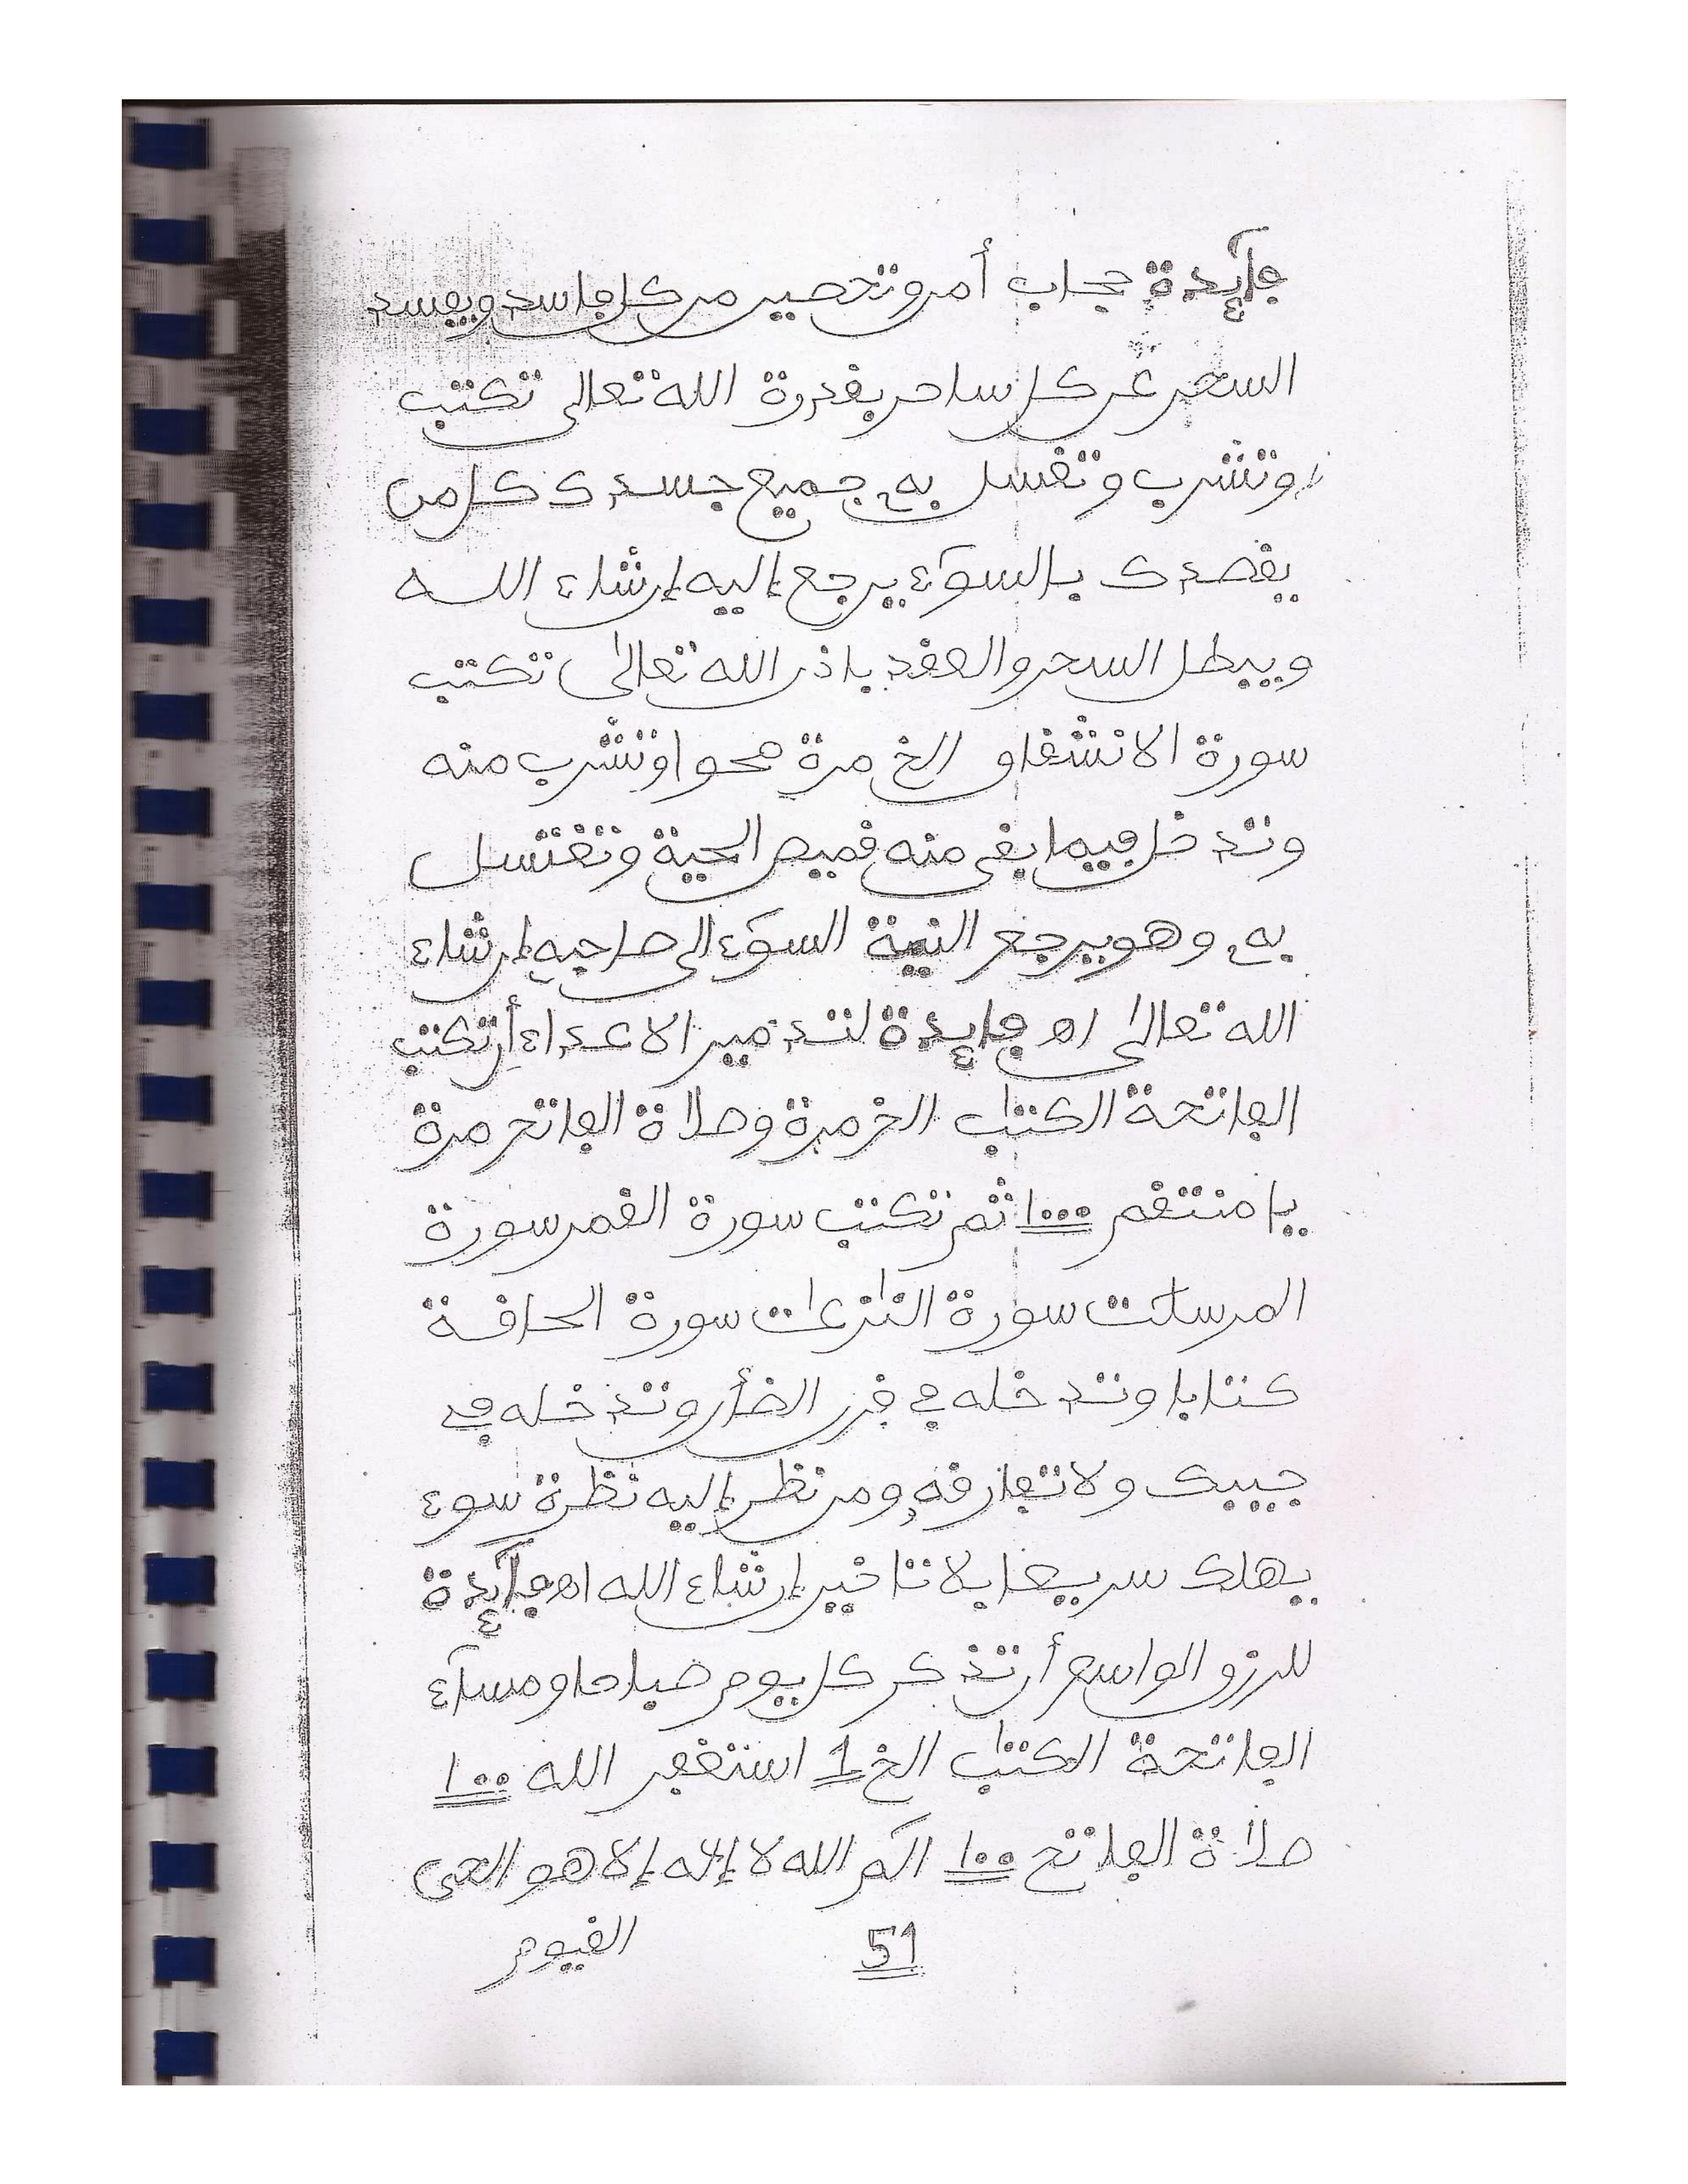 فآئدة حجاب أمن وتحصين من كل فاسد ويفسد
السحر عن كل ساحر بقدرة الله تعالى تكتب
وتشرب وتغسل به جميع جسدك كل من
يقصدك بالسوٓء يرجع إليه إن شاء الله
ويبطل السحر والعقد باذن الله تعالى تكتب
سورة الانشقاق الخ مرة محوا وتشرب منه
وتدخل فيما بقى منه قميص الحية وتغتسل
به وهو يرجع النية السوٓء الى صاحبه إن شاء
الله تعالى اه فايدة لتدمير الاعداء أن تكتب
الفاتحة الكتاب الخ مرة وصلاة الفاتح مرة
يا منتقم ١٠٠٠ ثم تكتب سورة القمر سورة
المرسلت سورة النزعت سورة الحاقة
كتابا وتدخله في قرن الضأن وتدخله في
جيبك ولا تفارقه ومن نظر إليه نظرة سوء
يهلك سريعا بلا تاخير إن شاء الله اه فآئدة
للرزق الواسع أن تذكر كل يوم صباحا ومسآء
الفاتحة الكتاب الخ 1 استغفر الله ١٠٠
صلاة الفاتح ١٠٠ الٓم الله لا إله إلا هو الحى
القيوم
51